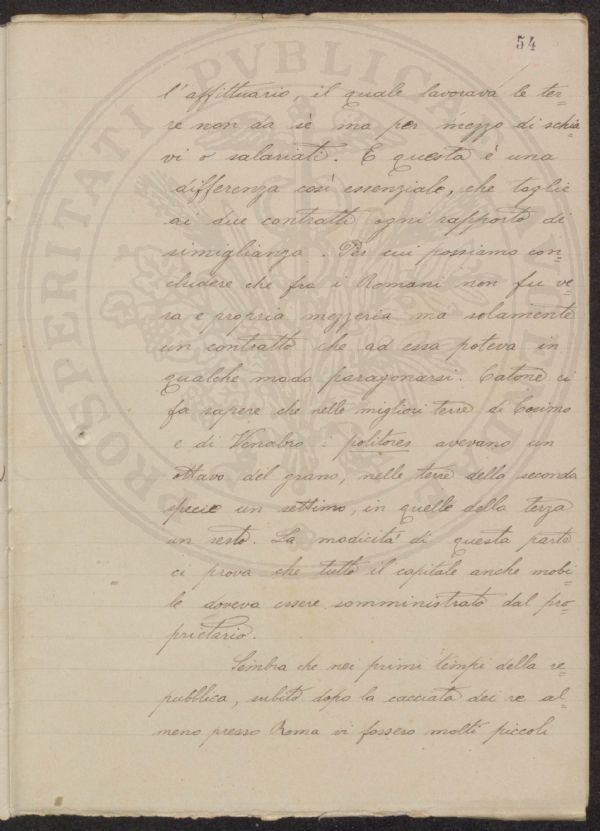 54
l'affittuario, il quale lavorava le ter=
re non da sè ma per mezzo di schia
vi o salariati. E questa è una
differenza così essenziale, che toglie
ai due contratti ogni rapporto di
simiglianza. Per cui possiamo con=
chiudere che fra i Romani non fu ve=
ra e propria mezzeria ma solamente
un contratto che ad essa poteva in
qualche modo paragonarsi. Catone ci
fa sapere che nelle migliori terre di Cosimo
e di Venabro i politores avevano un
ottavo del grano, nelle terre della seconda
specie un settimo, in quelle della terza
un sesto. La modicità di questa parte
ci prova che tutto il capitale anche mobi=
le doveva essere somministrato dal pro=
prietario.
Sembra che nei primi tempi della re=
pubblica, subito dopo la cacciata dei re al=
meno presso Roma vi fossero molti piccoli
PROSPERITATI PVBLICAE